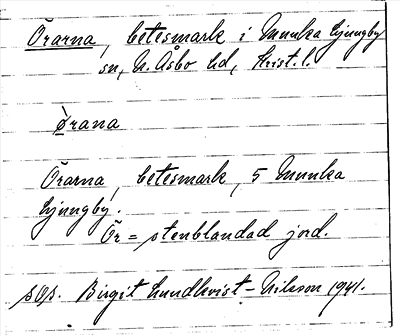 Örarna, betesmark i Munka Ljungby
sn, N. Åsbo hd, Krist. l.
Ørana
Örarna, betesmark, 5 Munka
Ljungby.
Ör = stenblandad jord.
sOp. Birgit Lundkvist-Nilsson 1941.